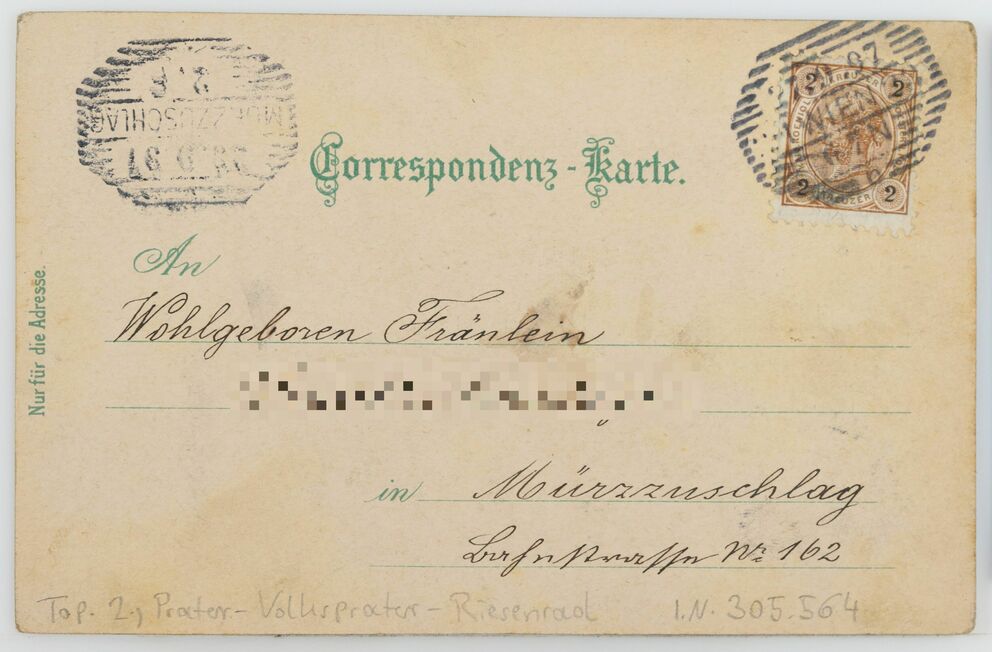 Correspondenz-Karte.
MÜRZZUSCHLAG
WIEN
2 2
2 KREUZER 2
Nur für die Adresse.
An
Wohlgeboren Fräulein
in Mürzzuschlag
Bahnstrasse Nr 162
Top. 2., Prater - Volksprater - Riesenrad I.N. 305.564